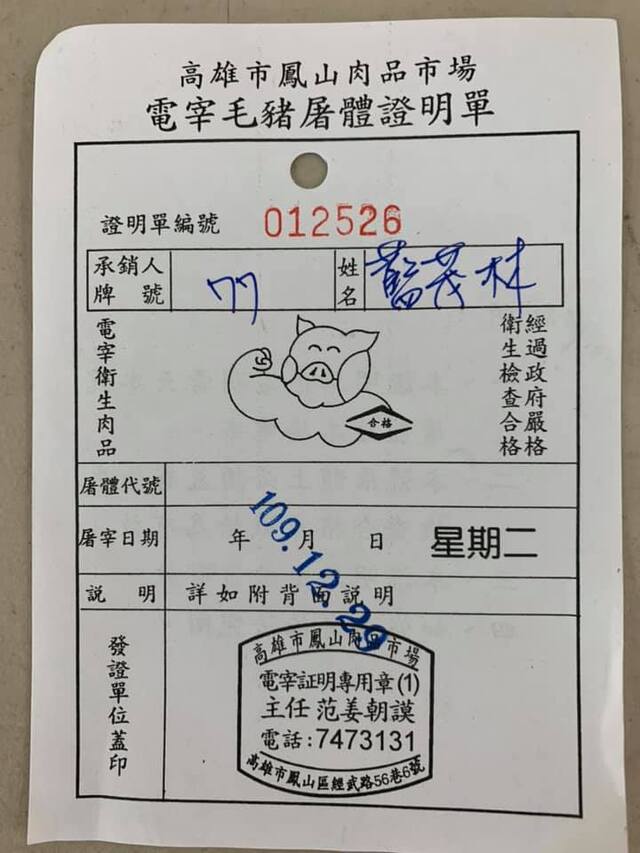 高雄市鳳山肉品市場
電宰毛豬屠體證明單
證明單編號 012526
承銷人牌號 77 姓名 藍茂林
電宰衛生肉品
合格
經過政府嚴格
衛生檢查合格
屠體代號
屠宰日期 年 月 日 星期二
109.12.29
說明 詳如附背面說明
發證單位蓋印
高雄市鳳山肉品市場
電宰証明專用章(1)
主任 范姜朝謨
電話:7473131
高雄市鳳山區經武路56巷6號